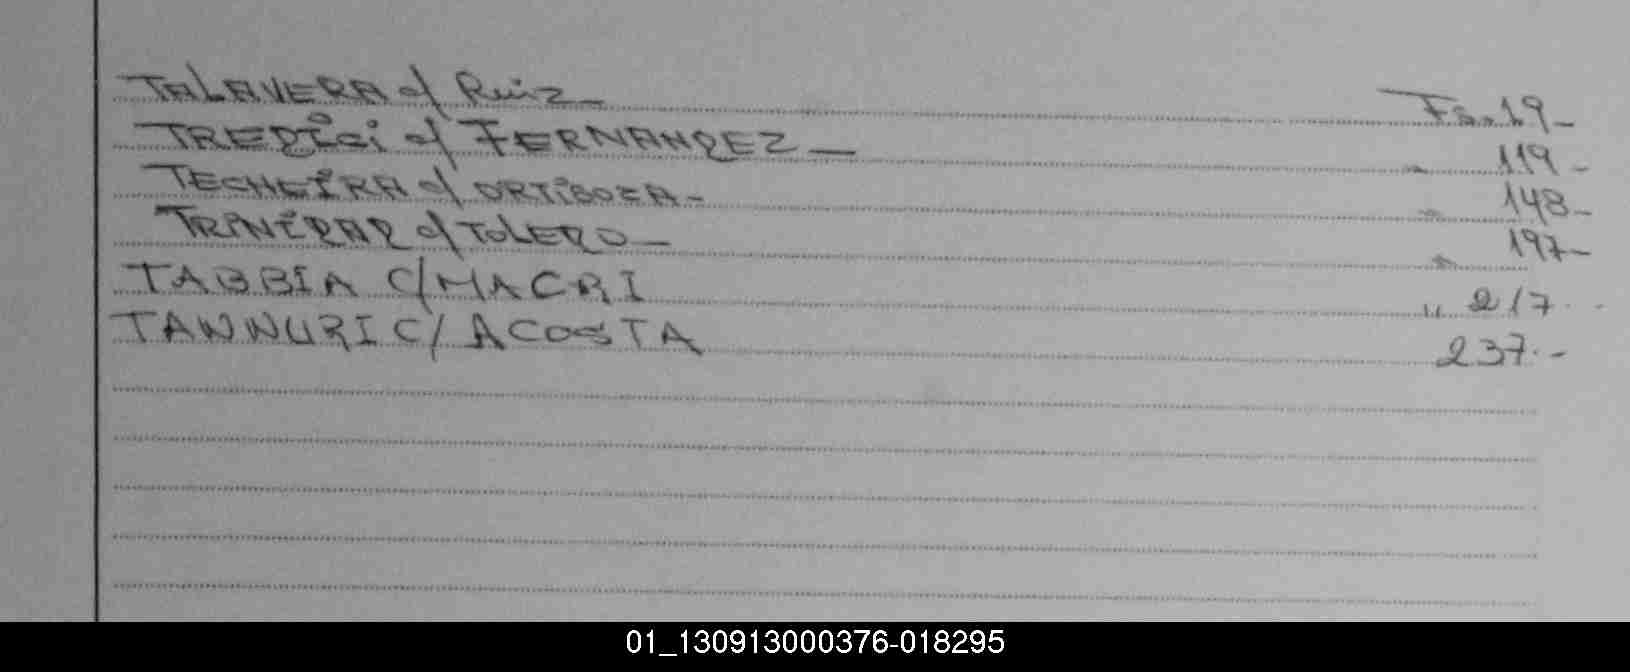 TALAVERA c/ Ruiz_ Fs. 19_
TREDICI c/ FERNANDEZ_ " 119_
TECHEIRA c/ ORTIGOZA_ " 148_
TRINIDAD c/ TOLEDO_ " 197_
TABBIA C/ MACRI " 217.-
TANNURI C/ ACOSTA 237.-
01_130913000376-018295